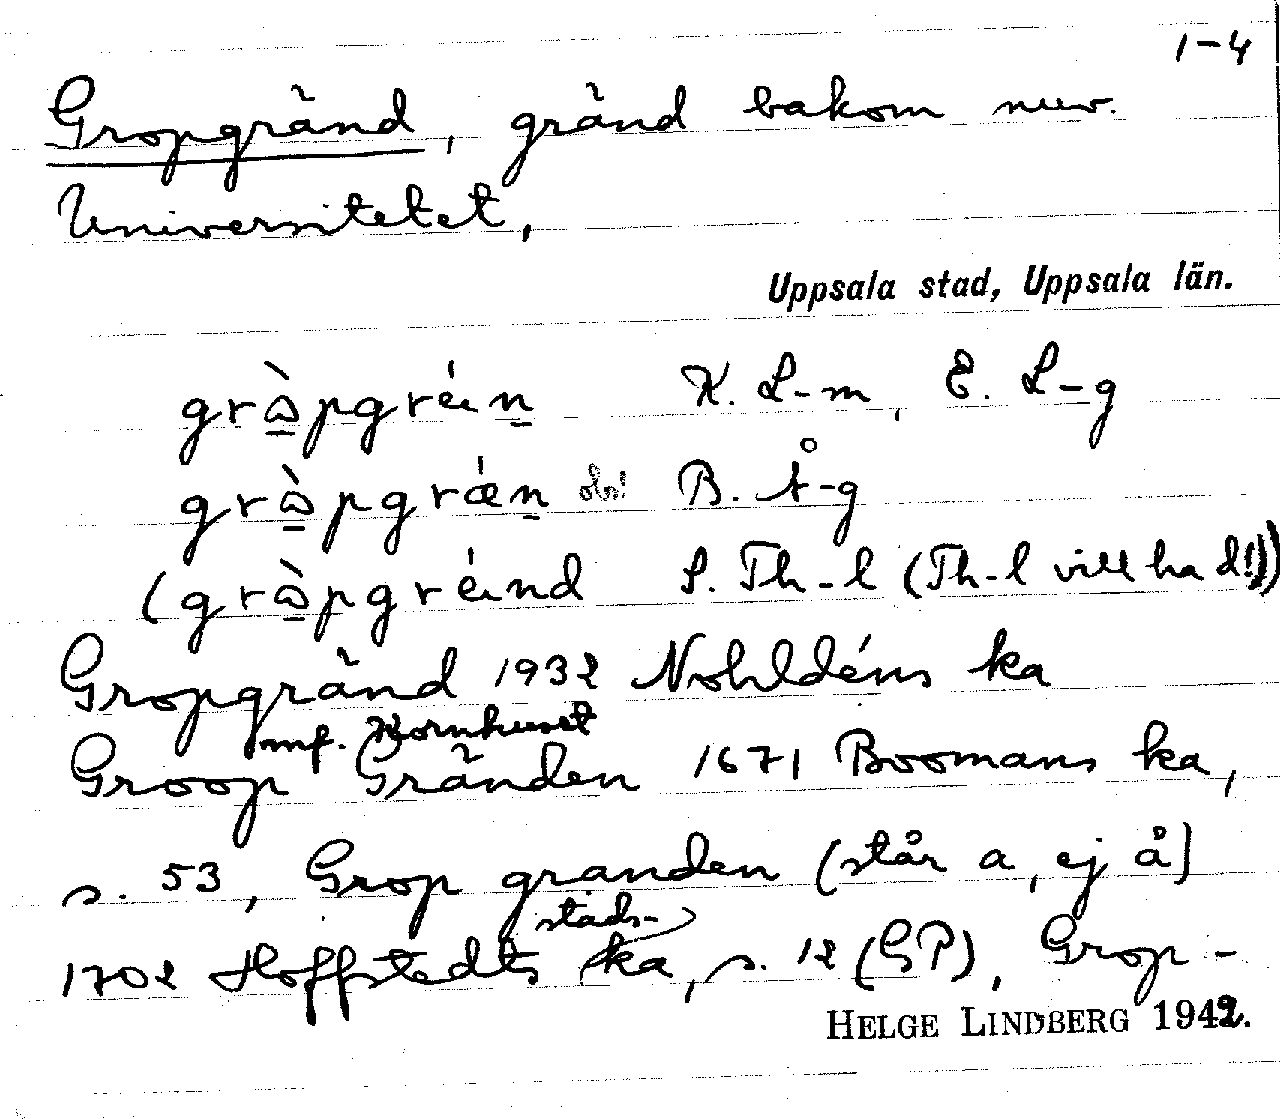 1-4
Gropgränd, gränd bakom nuv.
Universitetet,
Uppsala stad, Uppsala län.
K. L-m, E. L-g
obs! B. Å-g
S. Th-l (Th-l vill ha d!))
Gropgränd 1932 Nohldéns ka
inf. Kornhuset
Groop Gränden 1671 Boomans ka,
s. 53, Grop granden (står a, ej å)
1702 Hoffstedts stadska, s. 12 (GP), Grop-
HELGE LINDBERG 1942.